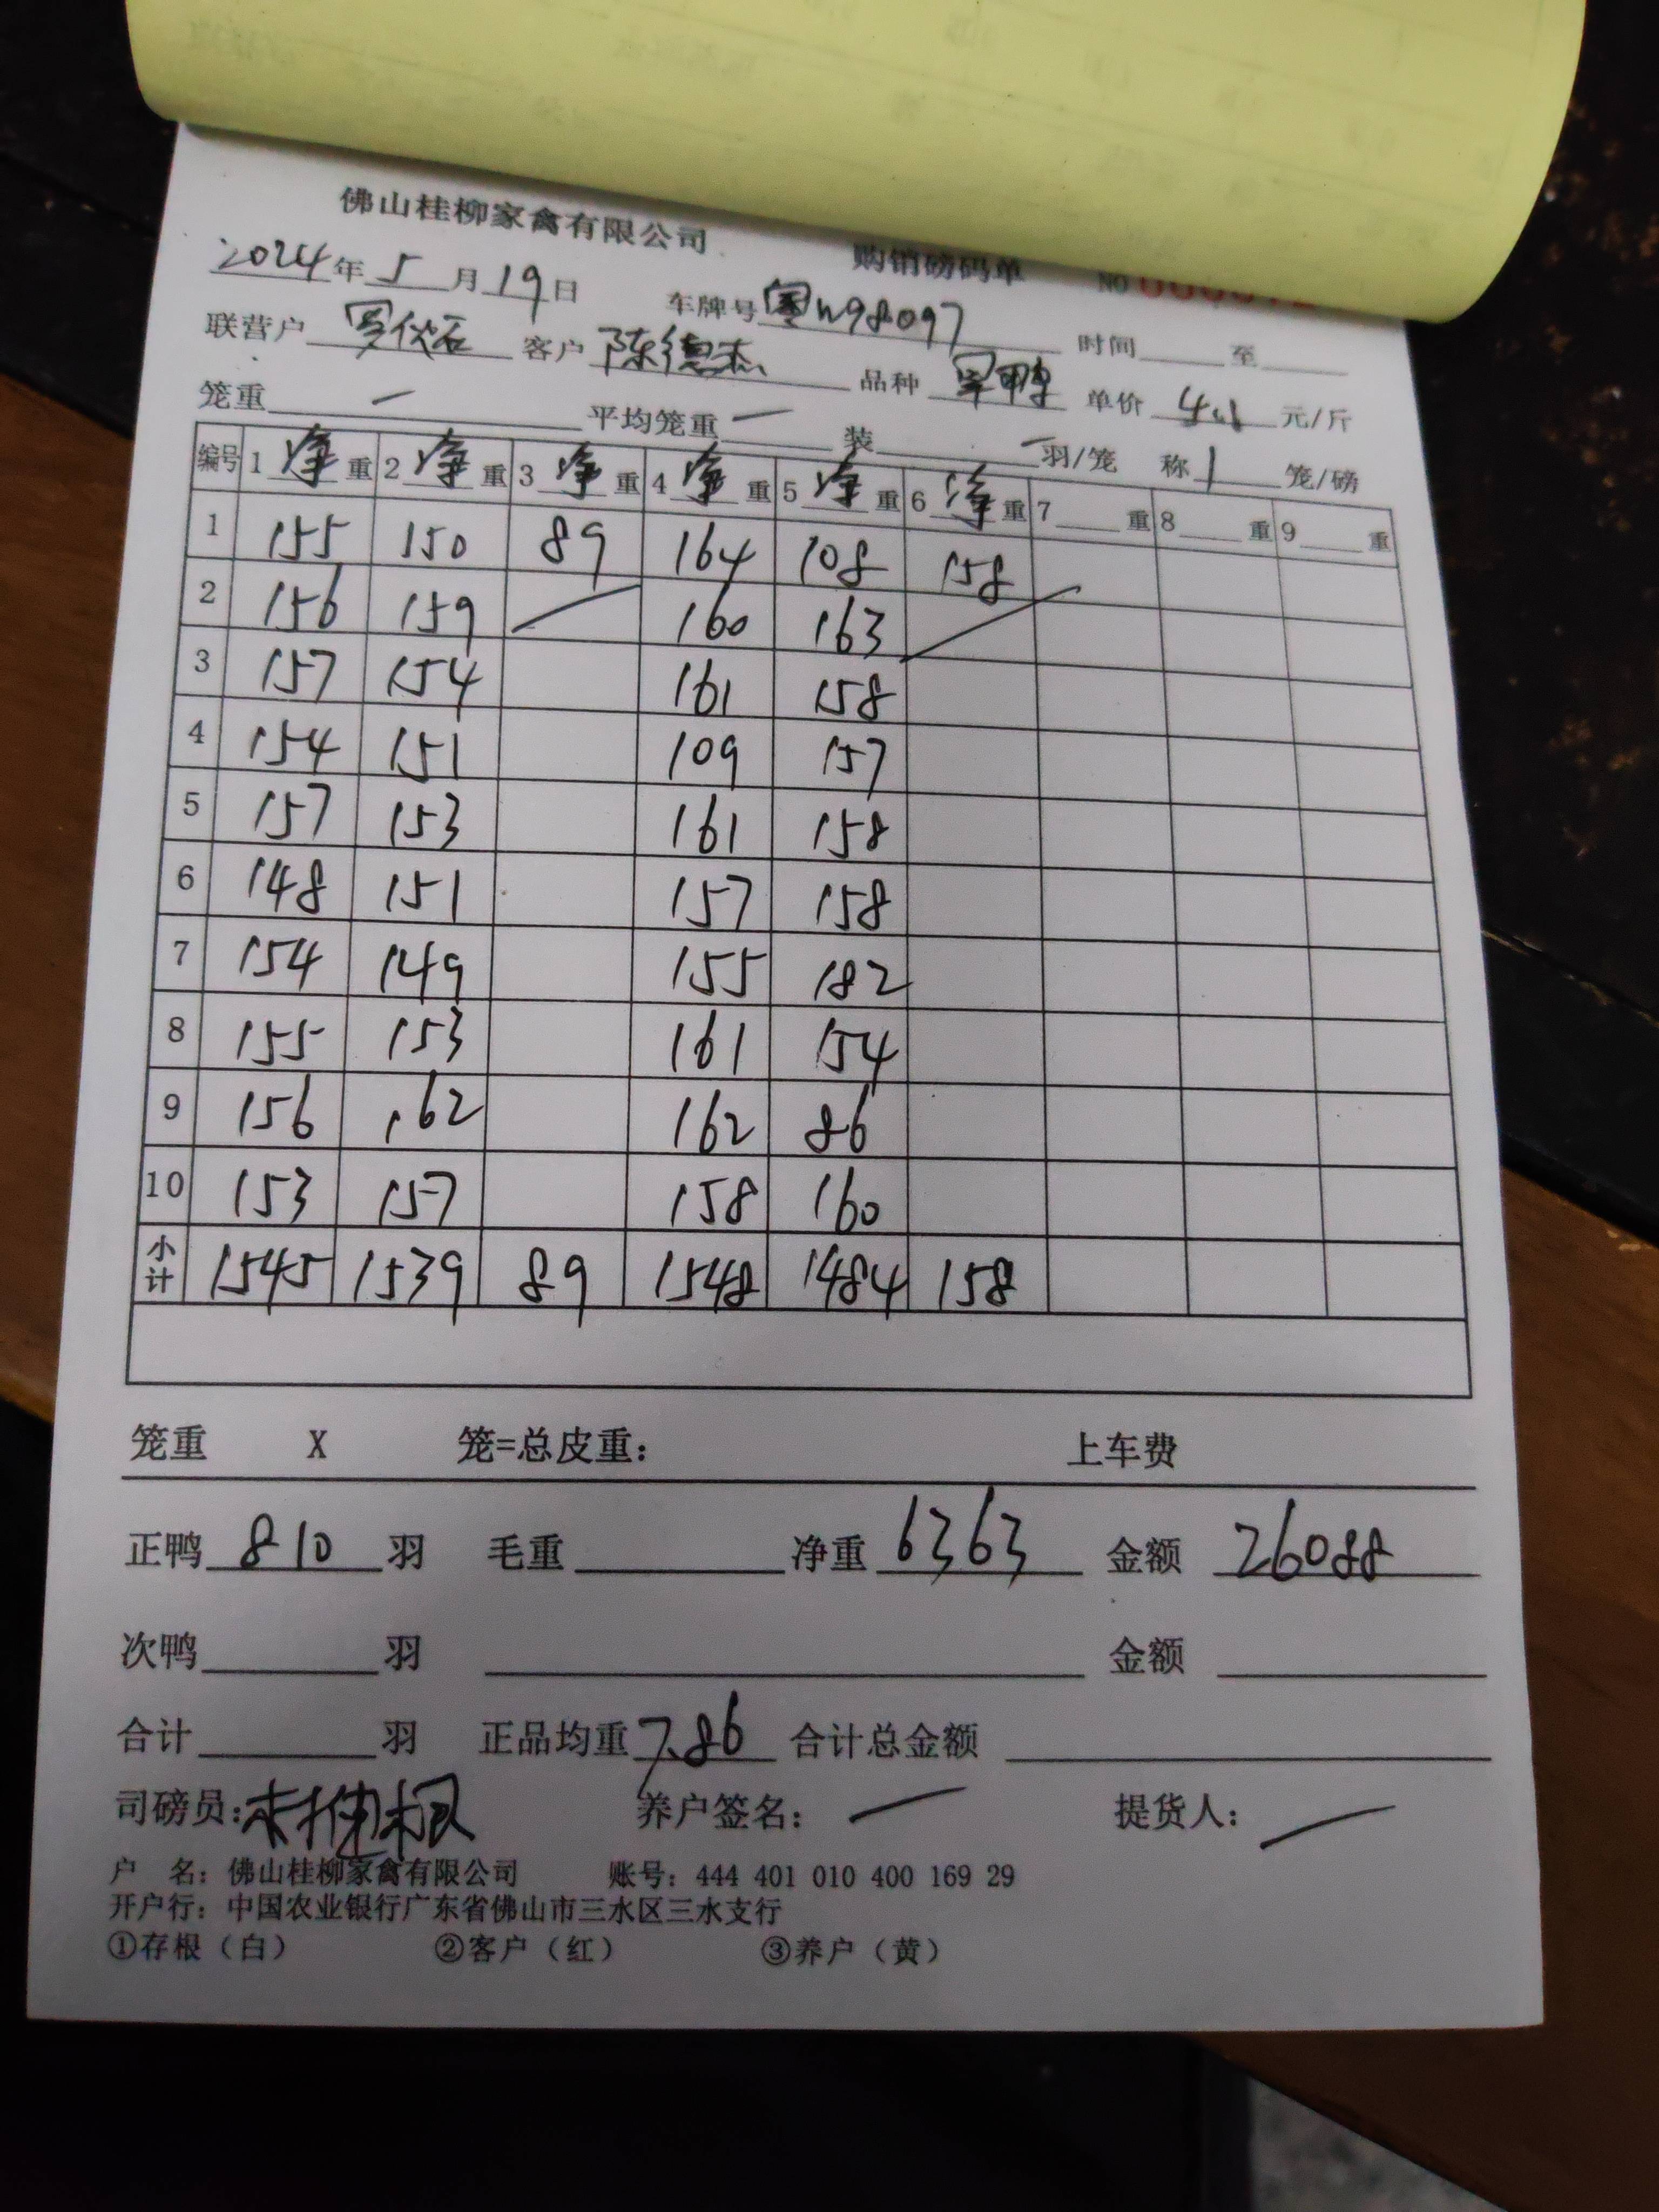 佛山桂柳家禽有限公司 购销磅码单 NO
2024年5月19日 车牌号 粤W98097 时间 至
联营户 客户 陈德杰 品种 单价 4.1 元/斤
笼重 一 平均笼重 一 装 一 羽/笼 称 1 笼/磅
编号 1 净 重 2 净 重 3 净 重 4 净 重 5 净 重 6 净 重 7 重 8 重 9 重
1 155 150 89 164 108 158
2 156 159 160 163
3 157 154 161 158
4 154 151 109 157
5 157 153 161 158
6 148 151 157 158
7 154 149 155 182
8 155 153 161 154
9 156 162 162 86
10 153 157 158 160
小计 1545 1539 89 1548 1484 158
笼重 X 笼=总皮重: 上车费
正鸭 810 羽 毛重 净重 6363 金额 26088
次鸭 羽 金额
合计 羽 正品均重 7.86 合计总金额
司磅员: 养户签名: 提货人:
户 名: 佛山桂柳家禽有限公司 账号: 444 401 010 400 169 29
开户行: 中国农业银行广东省佛山市三水区三水支行
①存根（白） ②客户（红） ③养户（黄）